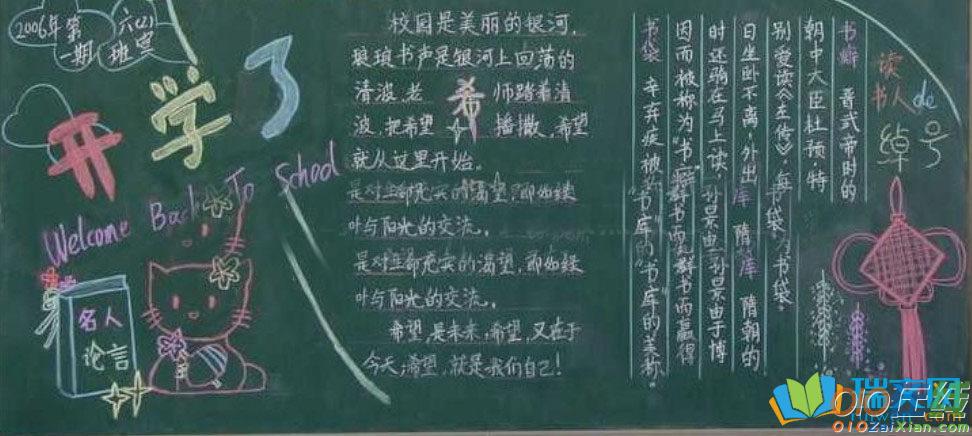 2006年第
一期
六(2)
班宣
开学了
Welcome Back To School
名人
论言
校园是美丽的银河,
琅琅书声是银河上回荡的
清波,老 师踏着清
波,把希望 播撒,希望
就从这里开始。
希
是对生命充实的渴望,即如绿
叶与阳光的交流。
是对生命充实的渴望,即如绿
叶与阳光的交流。
希望,是未来,希望,又在于
今天,希望,就是我们自己!
读
书人de
绰号
书癖 晋武帝时的
朝中大臣杜预特
别爱读《左传》,每
日坐卧不离,外出
时还驮在马上读,
因而被称为"书
书袋
书库 隋朝的
孙景由于博
群书而赢得
"书库"的美称。
瑞文网
010在线
010ZaiXian.com